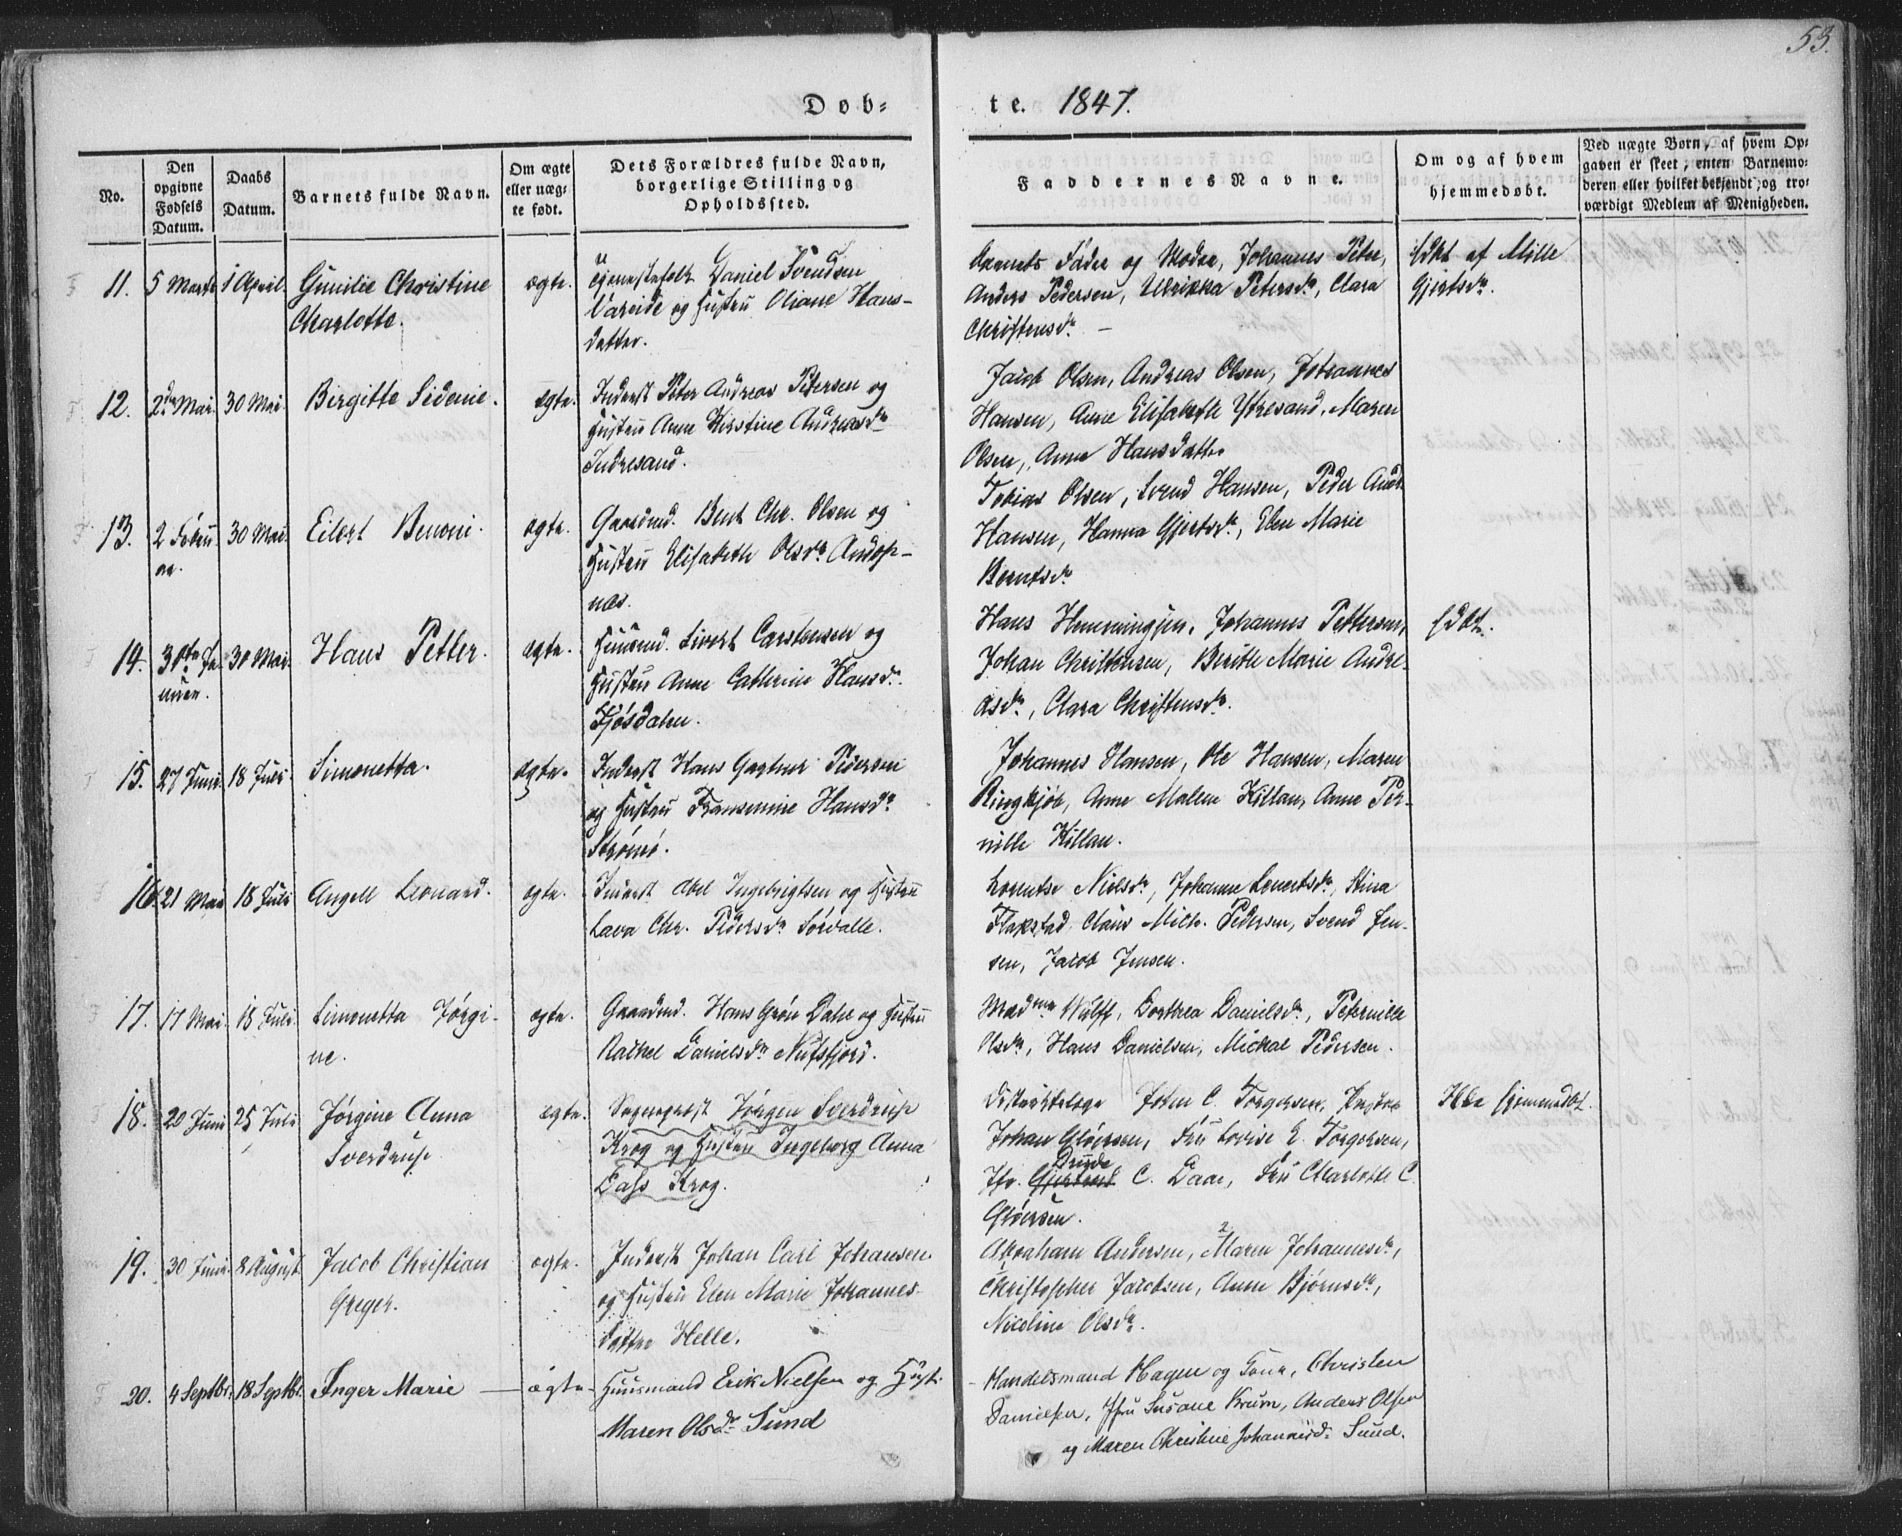 53.
Døb=
te. 1847.
No.
Den opgivne Fødsels Datum.
Daabs Datum.
Barnets fulde Navn.
Om ægte eller uægte født.
Dets Forældres fulde Navn, borgerlige Stilling og Opholdssted.
Faddernes Navne.
Om og af hvem hjemmedøbt.
Ved uægte Børn, af hvem Opgaven er skeet, enten Barnemoderen eller hvilket bekjendt, og troværdigt Medlem af Menigheden.
11. 5 Marts 1 April. Gunilie Christine ægte. Daniel Svendsen Barnets Fader og Moder, Johannes Peter, af Mille
Charlotte. Vareide og Hustru Oliane Hans- Anders Pedersen, Ulrikka Petersdr, Clara Gjertsdr.
datter. Christensdr. —
12. 2den Mai. 30 Mai. Birgitte Sidenie. ægte. Inderst Peter Andreas Petersen og Jacob Olsen, Andreas Olsen, Johannes
Hustru Anne Kirstine Andreasdr Hansen, Anne Elisabeth Ytresand, Maren
Indresand. Olsen, Anne Hansdatter
13. 2 Febru- 30 Mai. Eilert Benoni. ægte. Gaardmd. Bent Chr. Olsen og Tobias Olsen, Svend Hansen, Peder Andr.
ar. Hustru Elisabeth Olsdr Andop- Hansen, Hanna Gjertsdr, Elen Marie
næs. Berntsdr
14. 30 Mai. Hans Petter. ægte. Huusmd. Sivert Carstensen og Hans Hemmingsen, Johannes Pettersen,
Hustru Anne Cathrine Hansdr. Johan Christensen, Berith Marie Andre-
Fjøsdalen. asdr, Clara Christensdr.
15. 27 Juni 18 Juli. Simonetta. ægte. Inderst Hans Gartner Pedersen Johannes Hansen, Ole Hansen, Maren
og Hustru Fransemine Hansdr Ringkjøb, Anne Malene Killan, Anne Per-
Strømø. nille Killan.
16. 21 Mai 18 Juli Angell Leonard. ægte. Inderst Abel Ingebrigtsen og Hustru Lorentse Nielsdr, Johanne Lenertsdr, Stina
Lava Chr. Pedersdr Sørvalle. Flakstad, Claus Mich. Pedersen, Svend Jen-
sen, Jacob Jensen.
17. 17 Mai. 18 Juli. Simonetta Jørgi- ægte. Gaardmd. Hans Grøn Dahl og Hustru Madme Wulff, Dorthea Danielsdr, Peternille
ne. Rachel Danielsdr Nufsfjord. Olsdr, Hans Danielsen, Mickal Pedersen.
18. 20 Juni 25 Juli. Jørgine Anna ægte. Sogneprest Jørgen Sverdrup Districtslæge John C. Torgersen, Pastor
Sverdrup Krog og Hustru Ingeborg Anna Johan Gløersen, Fru Lovise E. Torgersen,
Dass Krog. Jfr. Gjertrud Drude C. Daae, Fru Charlotte C.
Gløersen.
19. 30 Juni 8 August. Jacob Christian ægte. Inderst Johan Carl Johansen Abraham Andersen, Maren Johannesdr,
Greger. og Hustru Elen Marie Johannes- Christopher Jacobsen, Anne Bjørnsdr,
datter Helle. Nicoline Olsdr.
20. 4 Septbr. 18 Septbr. Inger Marie — ægte. Huusmand Erik Nielsen og Hust. Handelsmand Hagen og Kone, Christen
Maren Olsdr Sund Danielsen, Jfru Susane Krum, Anders Olsen
og Maren Christine Johannesdr Sund.